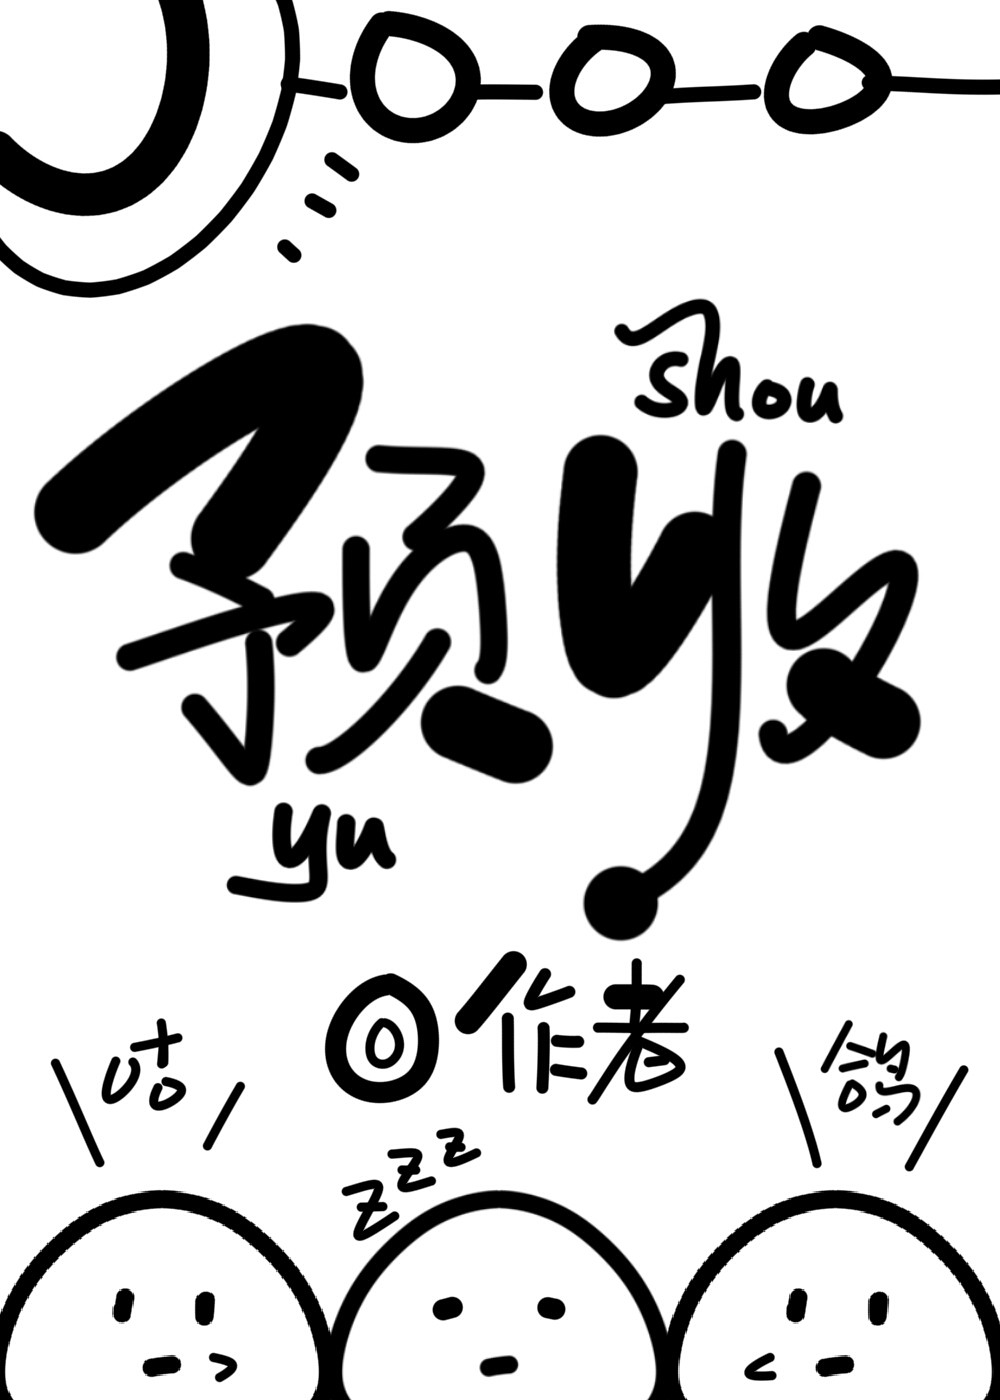 shou
预收
yu
@作者
咕
鸽
zzz